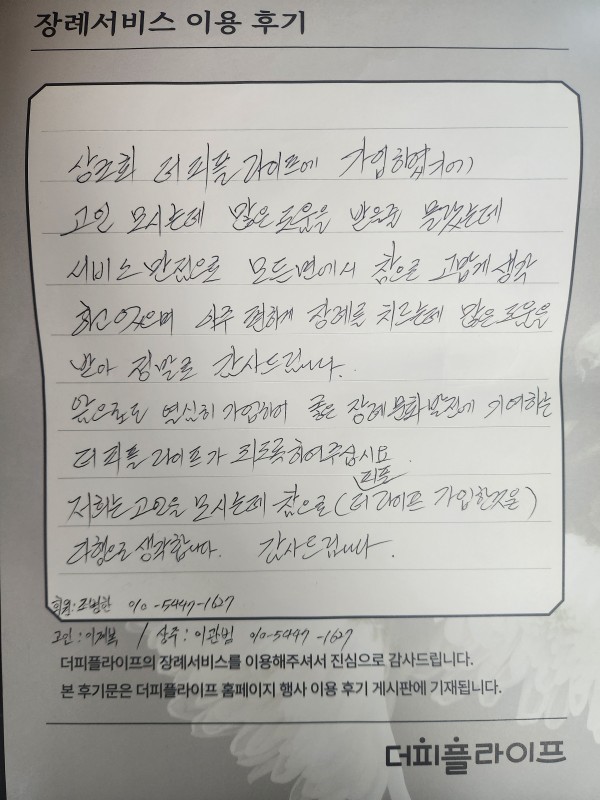 장례서비스 이용 후기
상조회 더피플 라이프에 가입하였기에
고인 모시는데 많은 도움을 받을줄 몰랐는데
서비스 만점으로 모든면에서 참으로 고맙게 생각
하고 있으며 아주 편하게 장례를 치르는데 많은 도움을
받아 정말로 감사드립니다.
앞으로도 열심히 가입하여 좋은 장례문화 발전에 기여하는
더 피플 라이프가 되도록하여주십시요.
피플
저희는 고인을 모시는데 참으로 (더 라이프 가입한것은)
다행으로 생각합니다. 감사드립니다.
회원: 010-5447-1627
고인: 이계복 / 상주: 이관범 010-5447-1627
더피플라이프의 장례서비스를 이용해주셔서 진심으로 감사드립니다.
본 후기문은 더피플라이프 홈페이지 행사 이용 후기 게시판에 기재됩니다.
더피플라이프